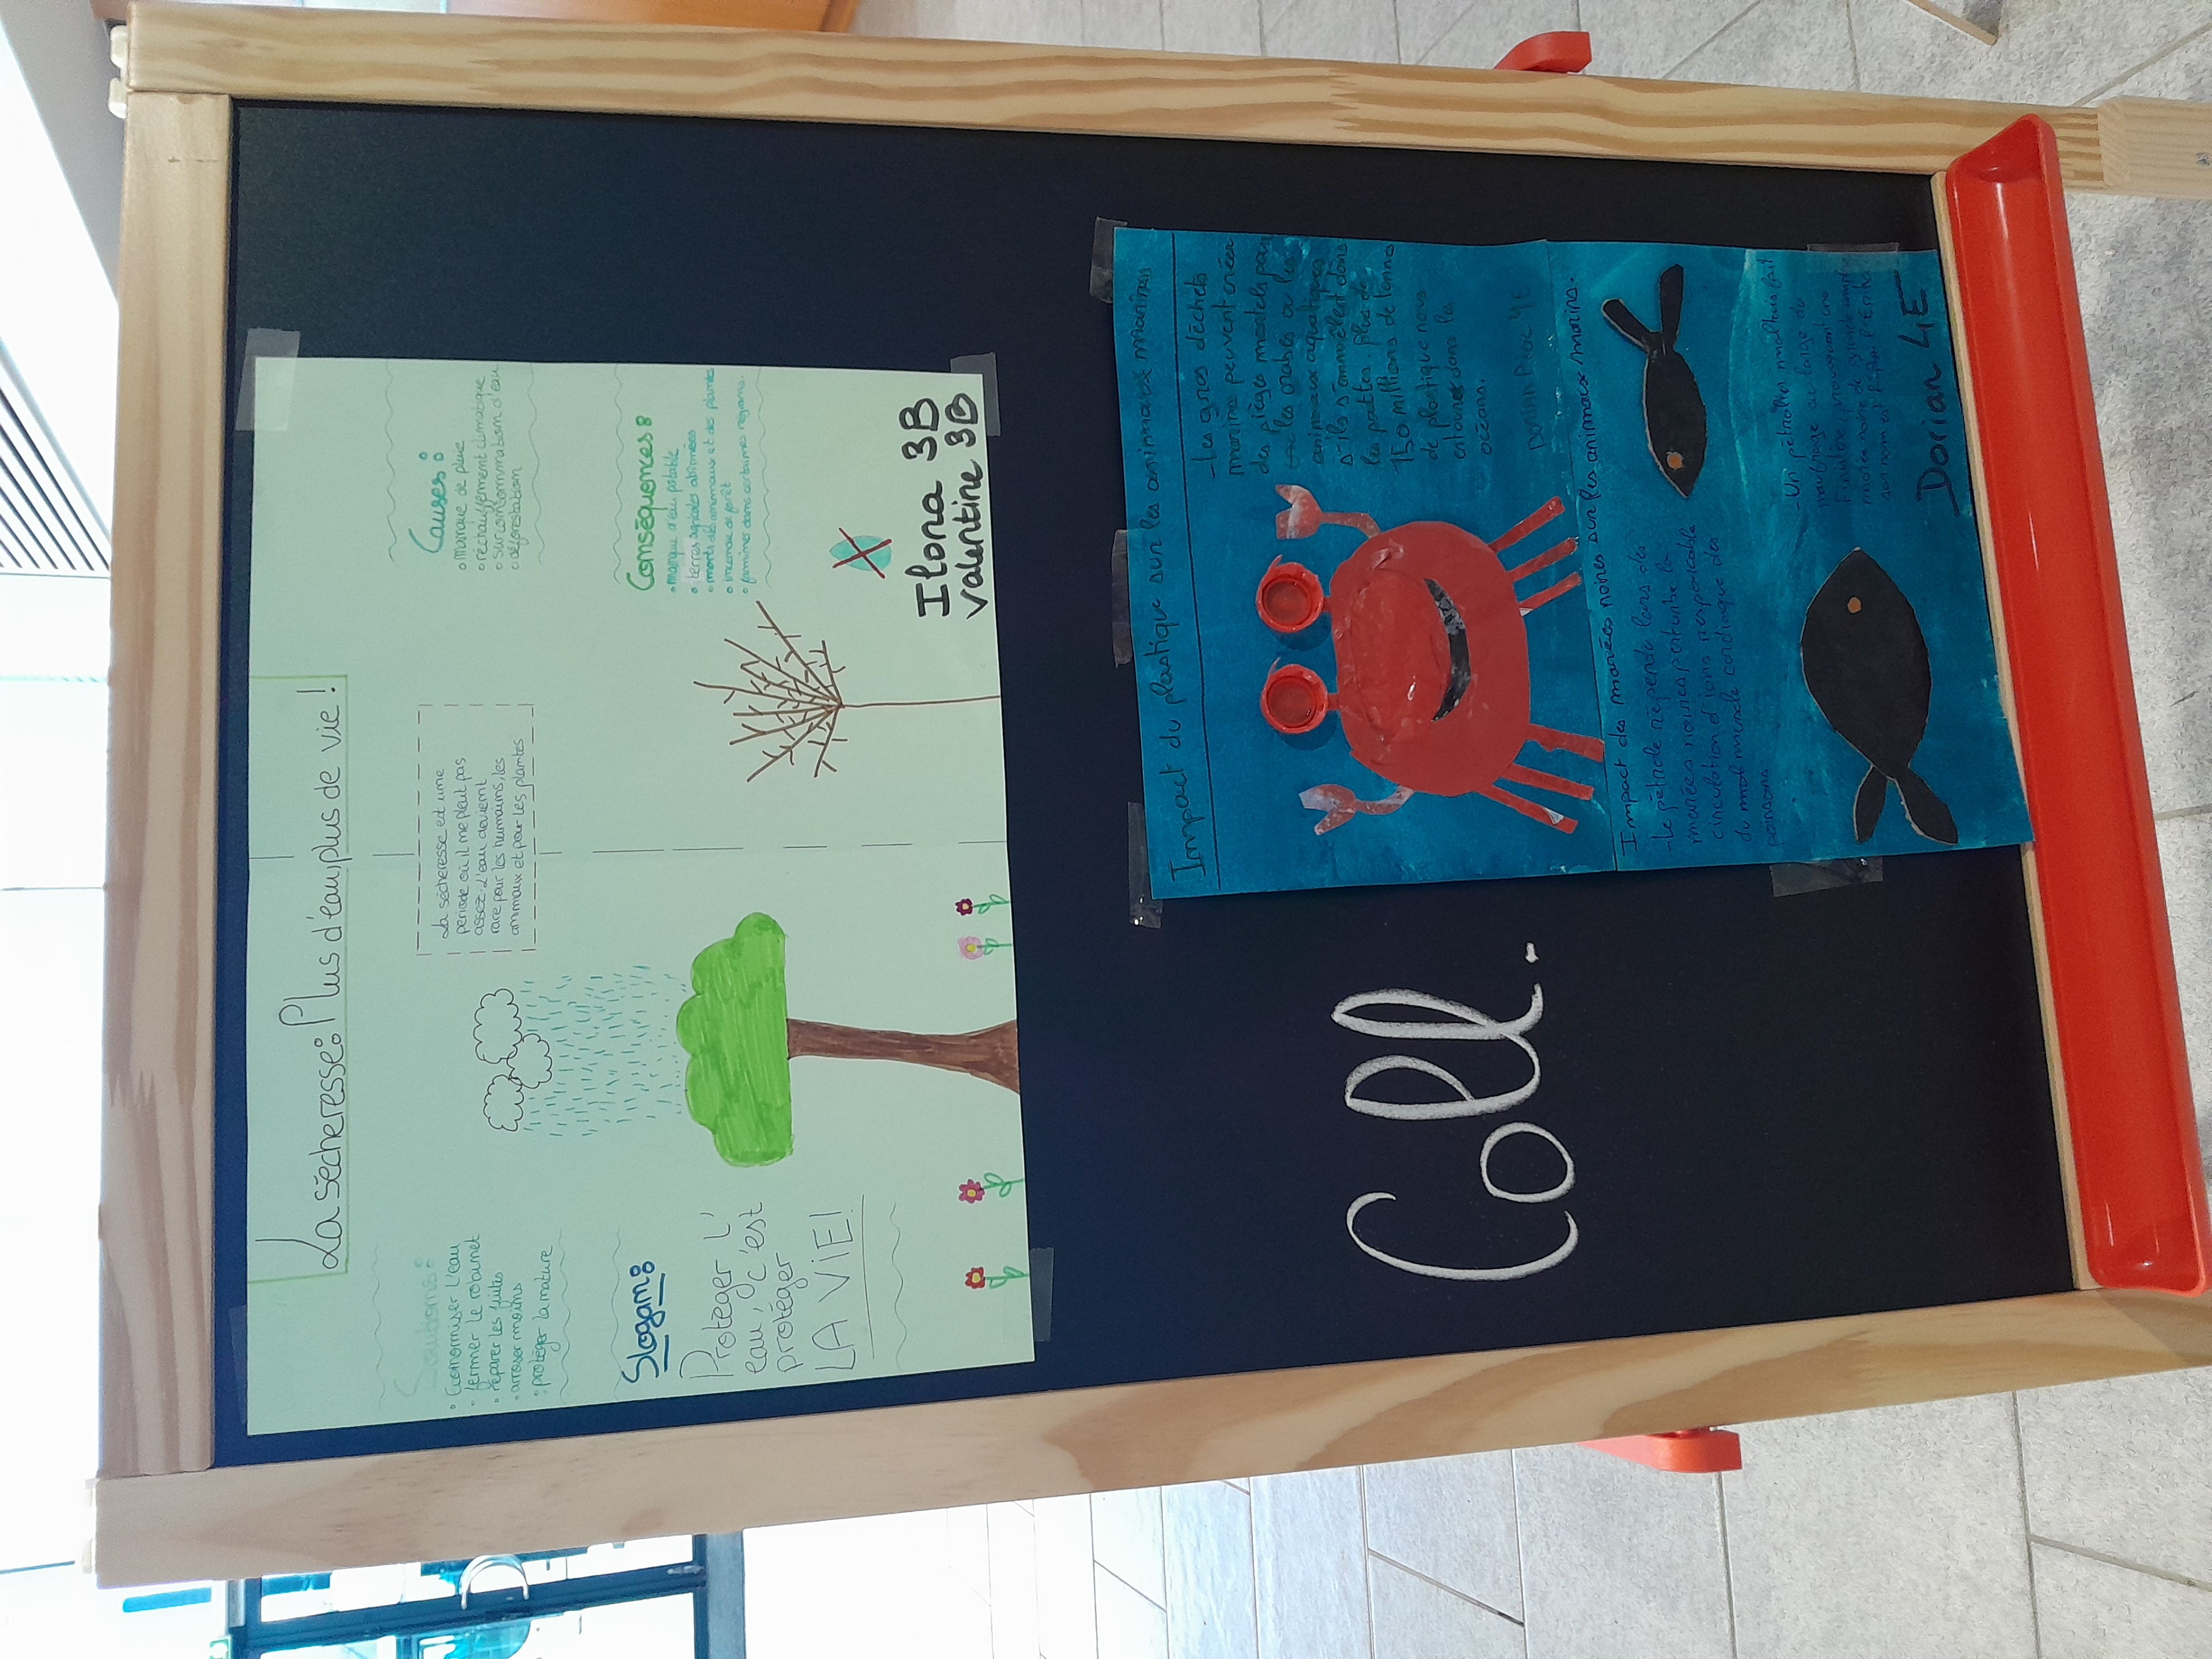 La sécheresse: Plus d'eau, plus de vie!
Solutions:
• Économiser l'eau
• fermer le robinet
• réparer les fuites
• arroser moins
• protéger la nature
Slogan:
Protéger l'
eau, c'est
protéger
LA VIE!
La sécheresse est une
période où il ne pleut pas
assez. L'eau devient
rare pour les humains, les
animaux et pour les plantes
Causes:
• manque de pluie
• réchauffement climatique
• surconsommation d'eau
• déforestation
Conséquences:
• manque d'eau potable
• terres agricoles abîmées
• morts des animaux et des plantes
• incendie de forêt
• famines dans certaines régions.
Ilona 3B
Valentine 3B
Impact du plastique sur les animaux marins
- Les gros déchets
marins peuvent créer
des pièges mortels pour
les crabes ou les
animaux aquatiques
s'ils s'emmêlent dans
les pattes. plus de
150 millions de tonnes
de plastique nous
entoure dans les
océans.
4E
Impact des marées noires sur les animaux marins.
- Le pétrole répendu lors de
marées noires perturbe la
circulation d'ions responsable
du muscle cardiaque des
poissons
- Un pétrolier maltais fait
naufrage au large de
provoquant une
marée noire de grande ampleur
son nom est l'Erika
Dorian 4E
Coll.